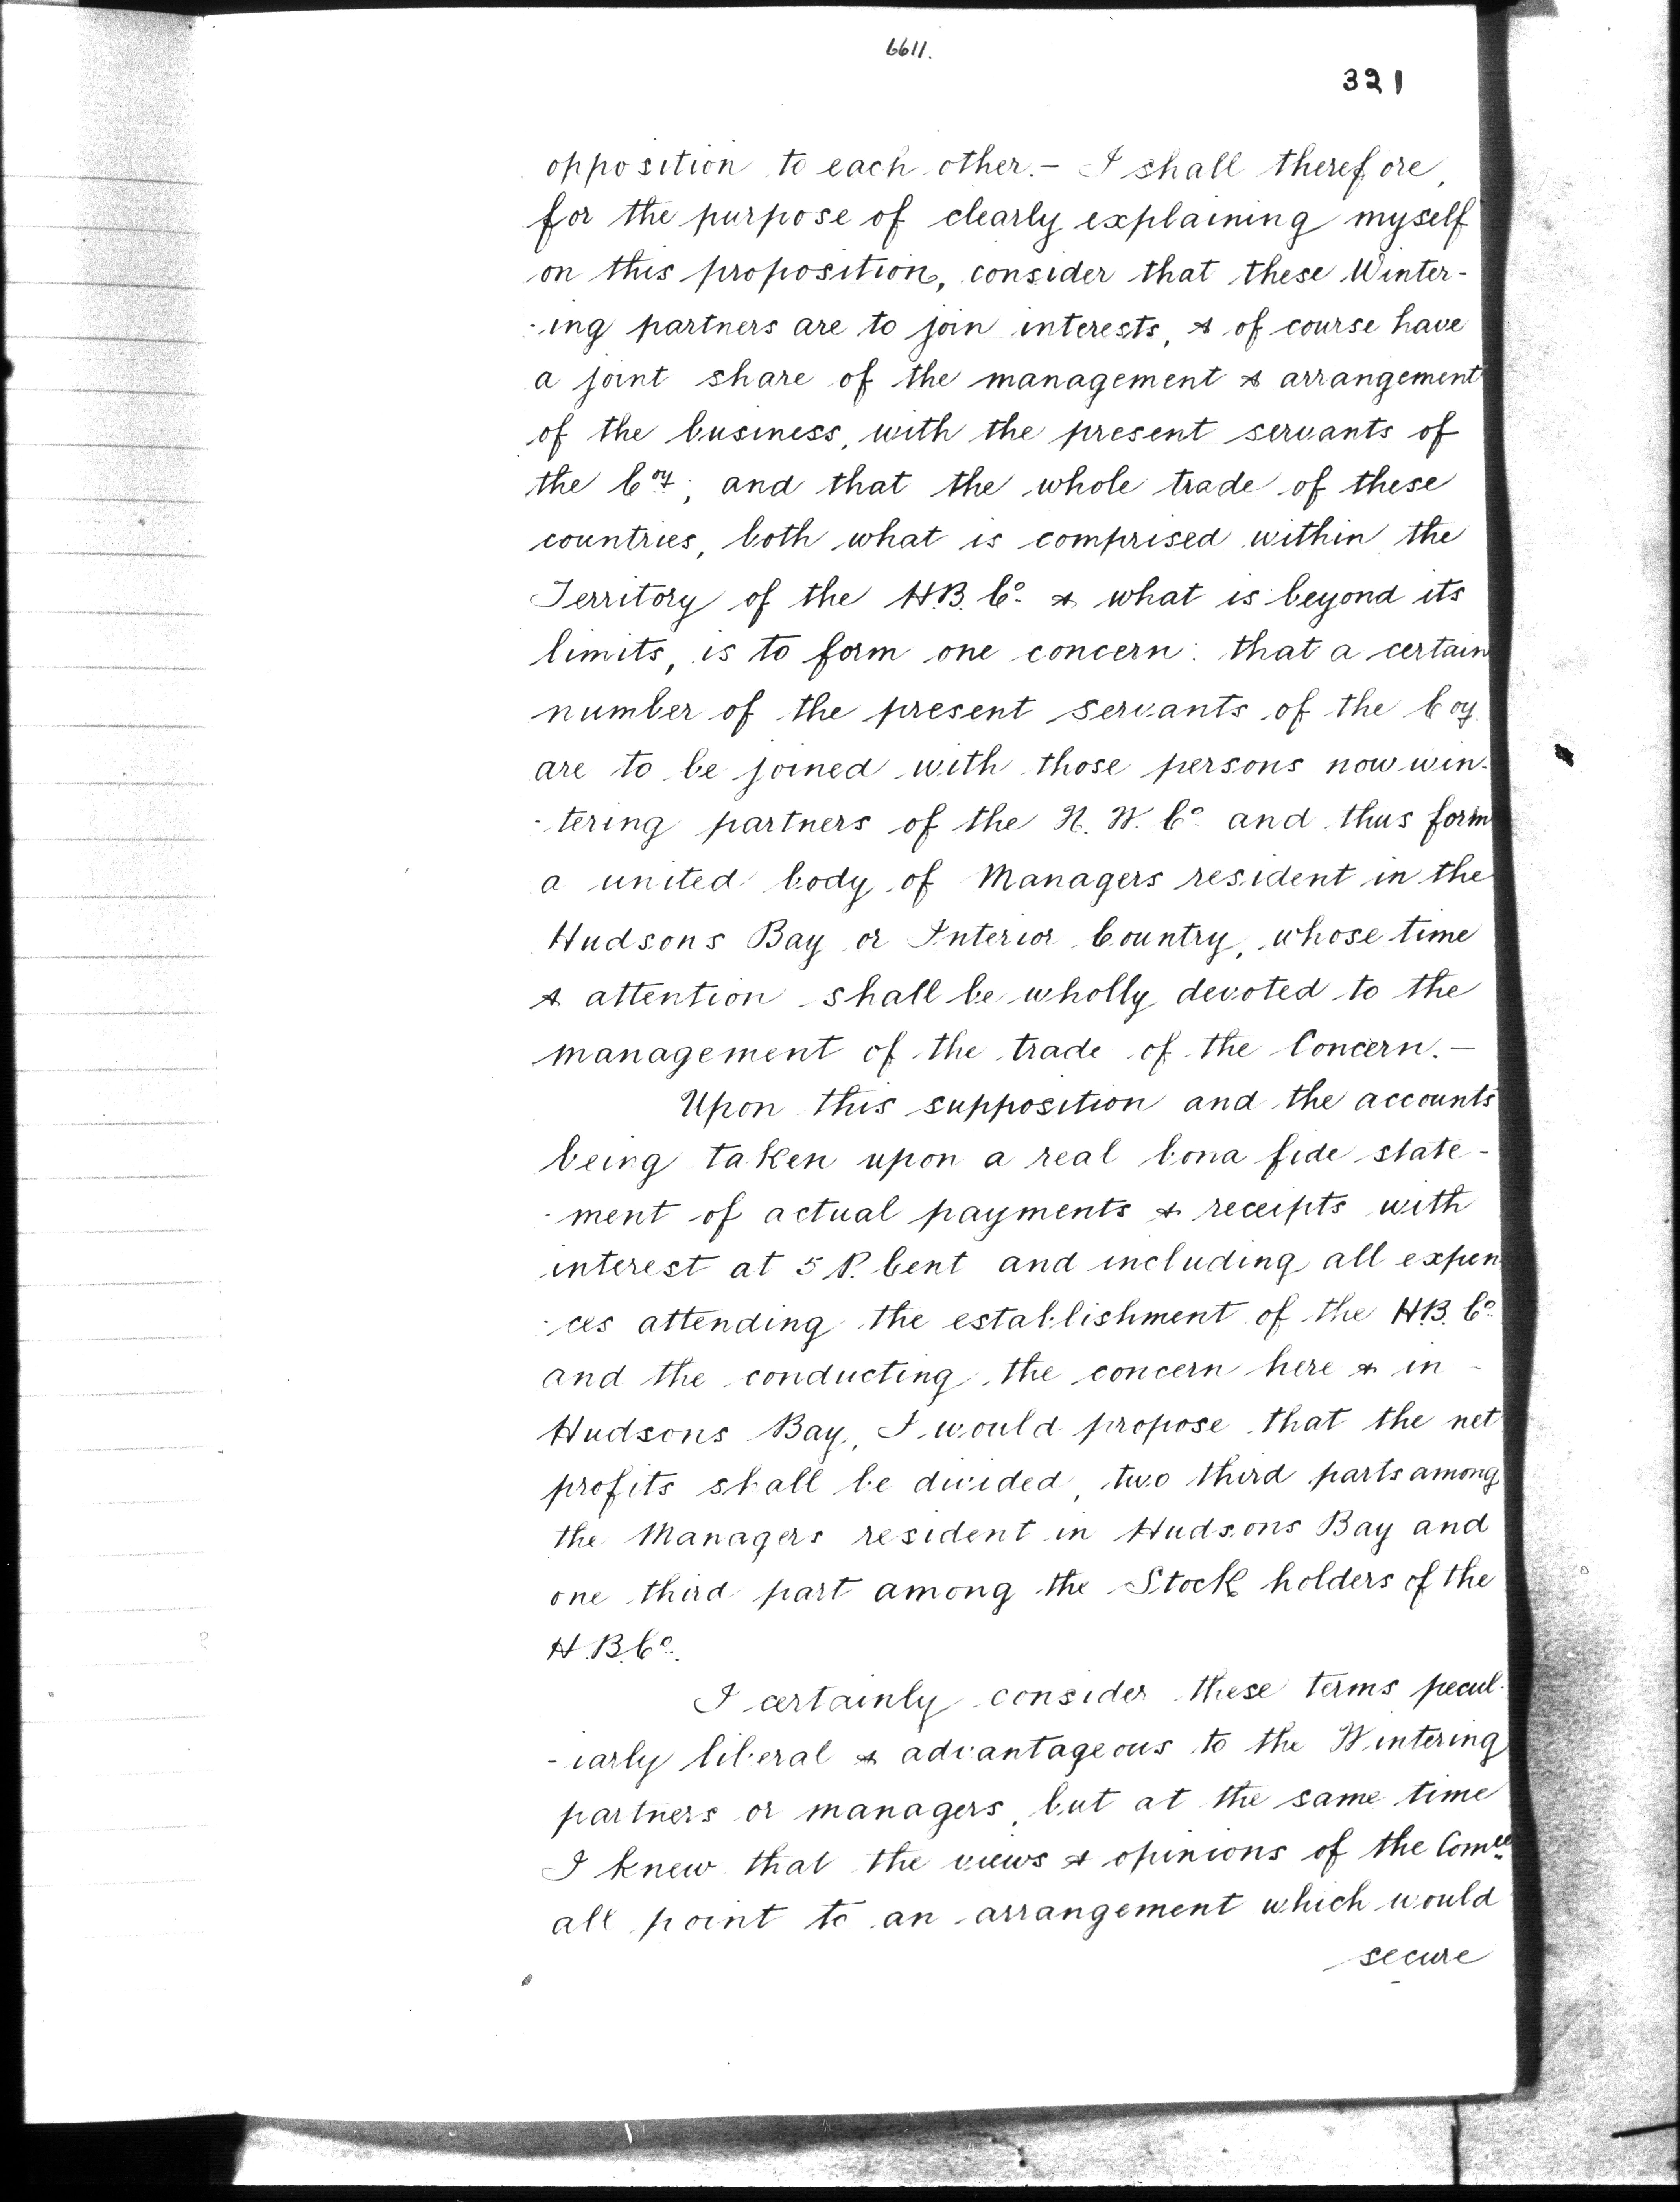 6611.
321
opposition to each other. — I shall therefore,
for the purpose of clearly explaining myself
on this proposition, consider that these Winter-
-ing partners are to join interests, & of course have
a joint share of the management & arrangement
of the business, with the present servants of
the Coy; and that the whole trade of these
countries, both what is comprised within the
Territory of the H.B. Co. & what is beyond its
limits, is to form one concern: that a certain
number of the present servants of the Coy.
are to be joined with those persons now win-
-tering partners of the N. W. Co. and thus form
a united body of Managers resident in the
Hudsons Bay or Interior Country, whose time
& attention shall be wholly devoted to the
management of the trade of the Concern. —
Upon this supposition and the accounts
being taken upon a real bona fide state-
-ment of actual payments & receipts with
interest at 5 P. Cent and including all expen
-ces attending the establishment of the H.B. Co.
and the conducting the concern here & in
Hudsons Bay, I would propose that the net
profits shall be divided, two third parts among
the Managers resident in Hudsons Bay and
one third part among the Stock holders of the
H.B. Co.
I certainly consider these terms pecul-
-iarly liberal & advantageous to the Wintering
partners or managers, but at the same time
I knew that the views & opinions of the Comee
all point to an arrangement which would
secure